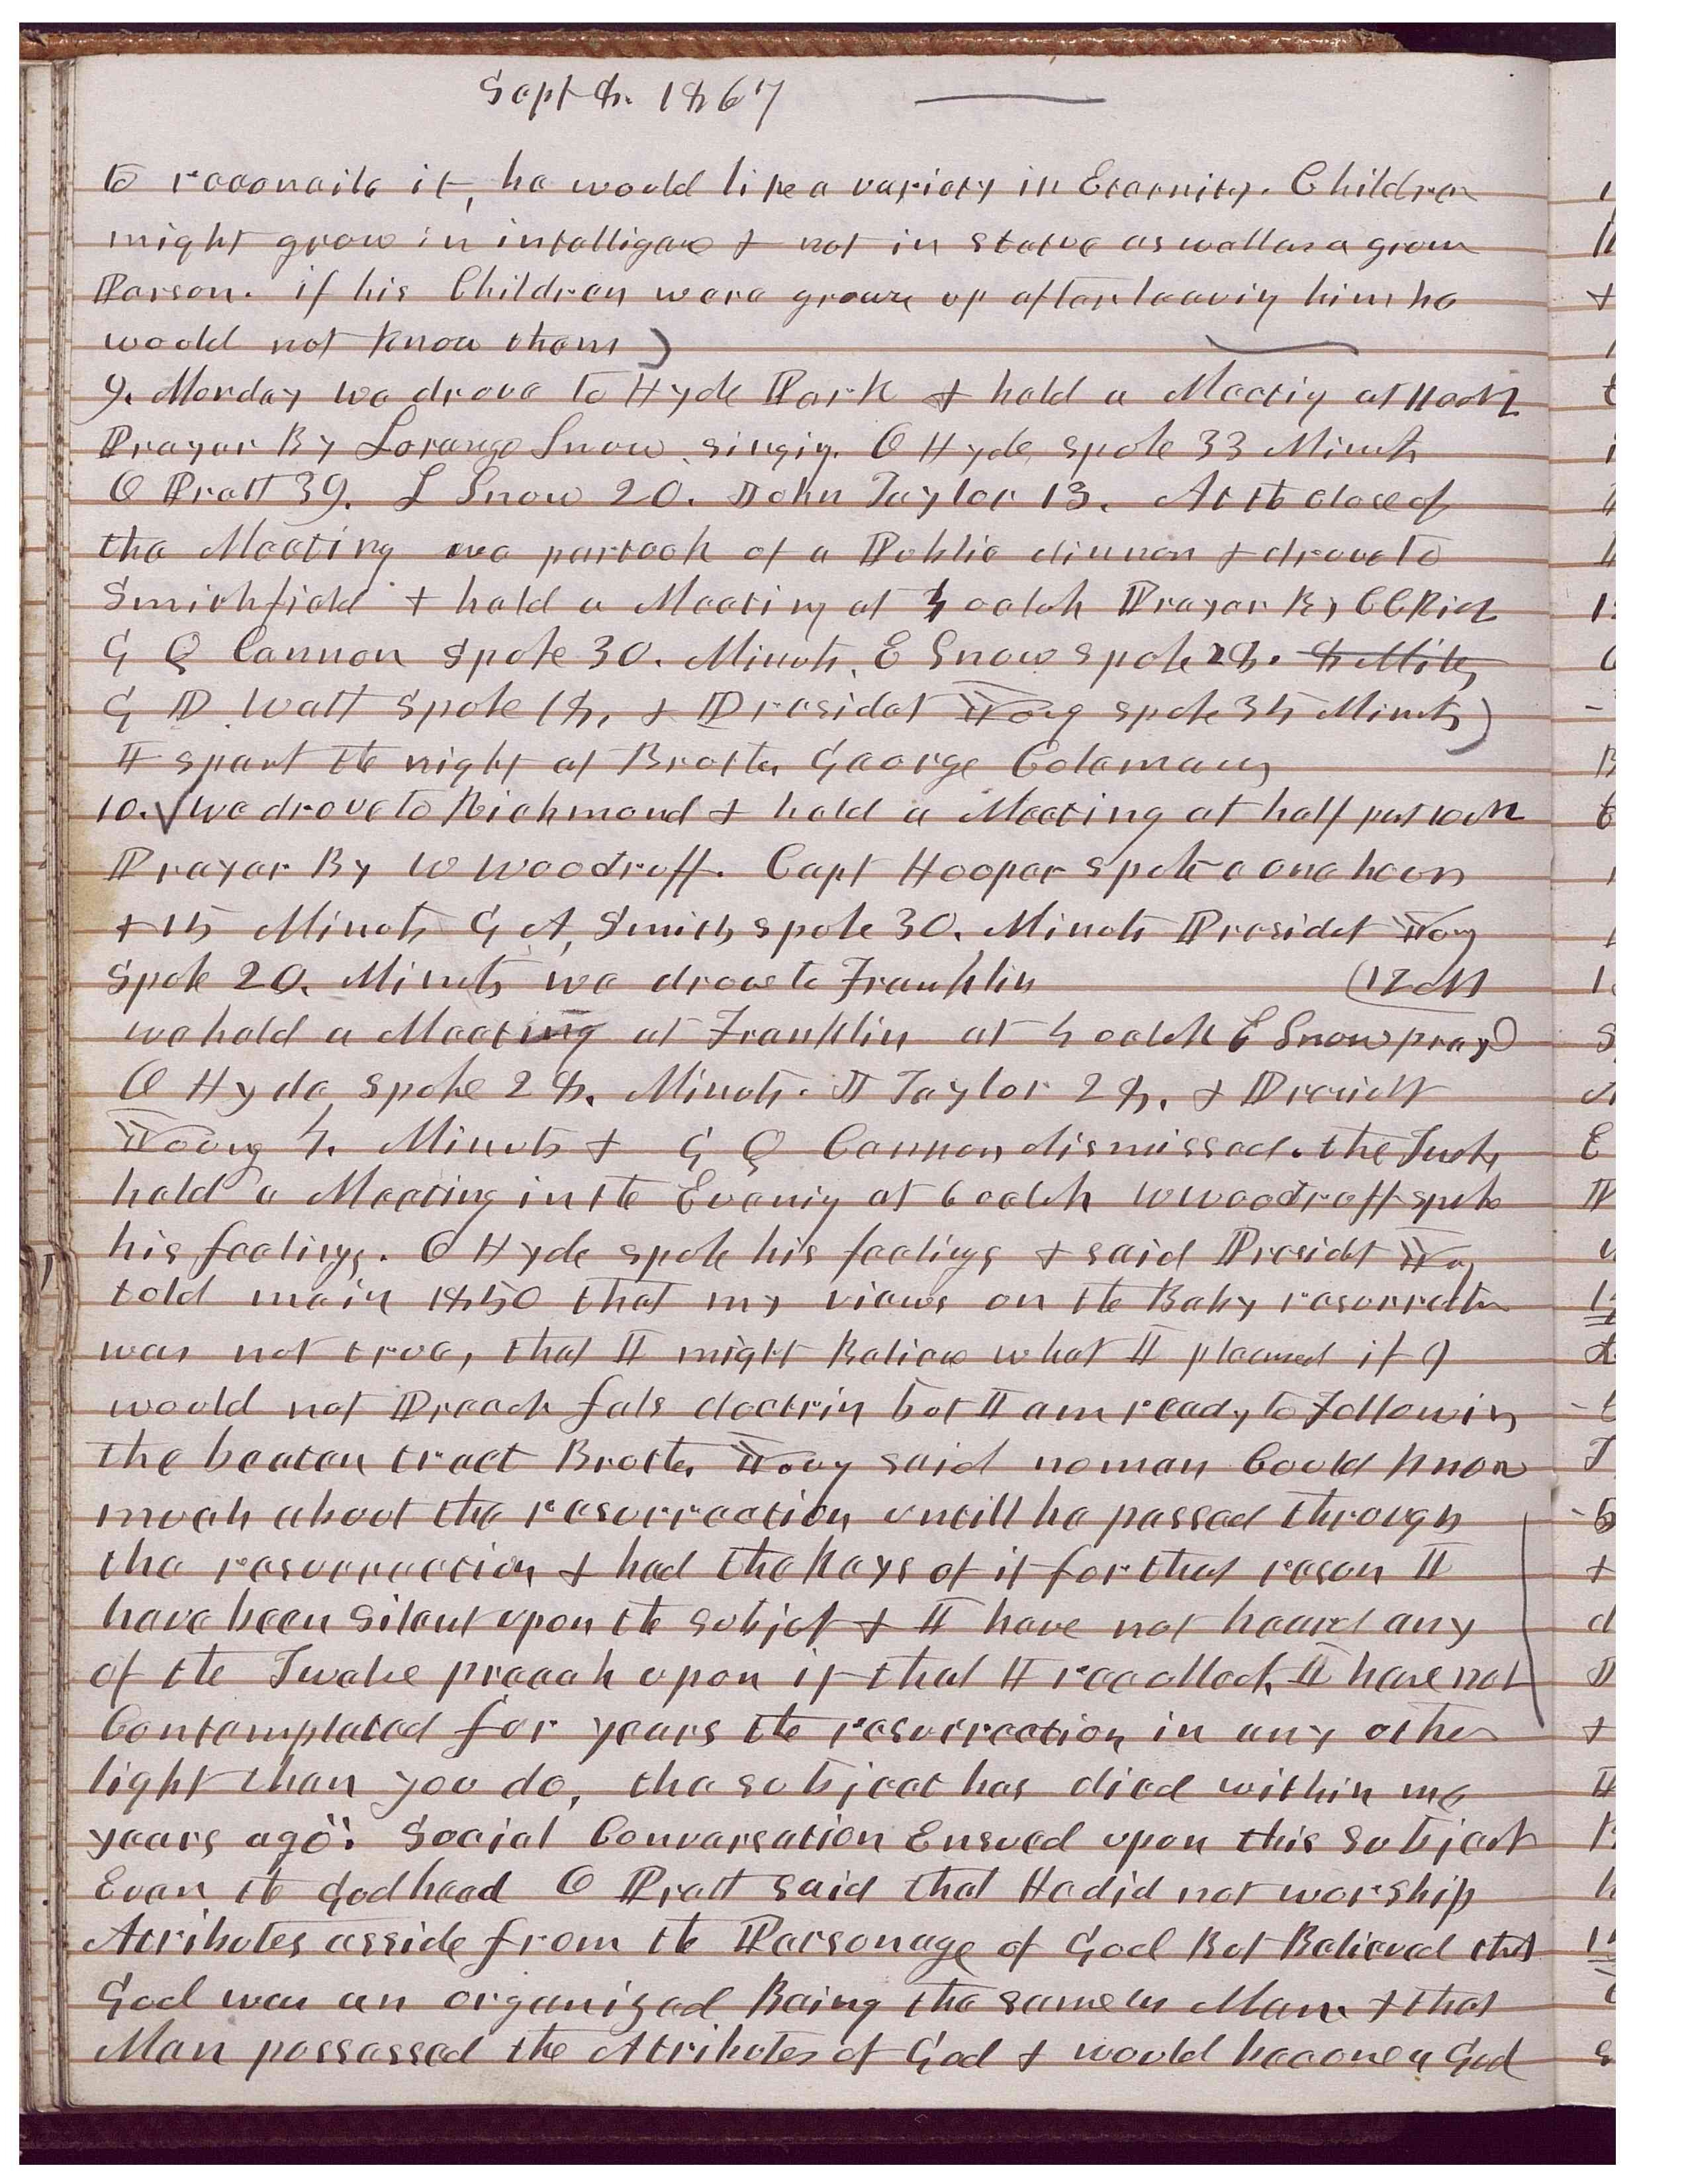 Sept 8. 1867
to reconcile it, he would like a variety in Eternity. Children
might grow in intelligence & not in statue as well as a grown
Person. if his Children were grown up after leaving him he
would not know them)
9. Monday we drove to Hyde Park & held a Meeting at 11 oclk
Prayer By Lorenzo Snow, singing. O Hyde spoke 33 Minuts
O Pratt 39. L Snow 20. John Taylor 13. At the close of
the Meeting we partook of a Public dinner & drove to
Smithfield & held a Meeting at 4 oclok Prayer By C C Rich
G Q Cannon spoke 30. Minuts, E Snow spoke 28. 8 Miles
G D Watt spoke 18, & Presidet Young spoke 35 Minuts)
I spent the night at Brother George Colemans
10. we drove to Richmond & held a Meeting at half past 10 oclk
Prayer By W Woodruff. Capt Hooper spoke one hour
& 15 Minuts G A, Smith spoke 30. Minuts Presidet Young
spoke 20. Minuts we drove to Franklin (12 M
we held a Meeting at Franklin at 4 oclok E Snow prayd
O Hyde spoke 28. Minuts. J Taylor 28. & Presidet
Young 4. Minuts & G Q Cannon dismissed. the Twelve
held a Meeting in the Evenig at 6 oclok W Woodruff spoke
his feelings. O Hyde spoke his feelings & said Presidet Young
told me in 1850 that my views on the Baby resurrection
was not true, that I might Believe what I pleased if I
would not Preach fals doctrin but I am ready to follow in
the beaten tract Brother Young said no man Could know
much about the resurrection untill he passed through
the resurrection & had the Keys of it for that reason I
have been silent upon the subject & I have not heard any
of the Twelve preach upon it that I reccollect, I have not
Contemplated for years the resurrection in any other
light than you do, the subject has died within me
years ago": Social Conversation Ensued upon this subject
Even the Godhead O Pratt said that He did not worship
Atributes asside from the Personage of God But Believed that
God was an organized Being the same as Man & that
Man possessed the Atributes of God & would become a God